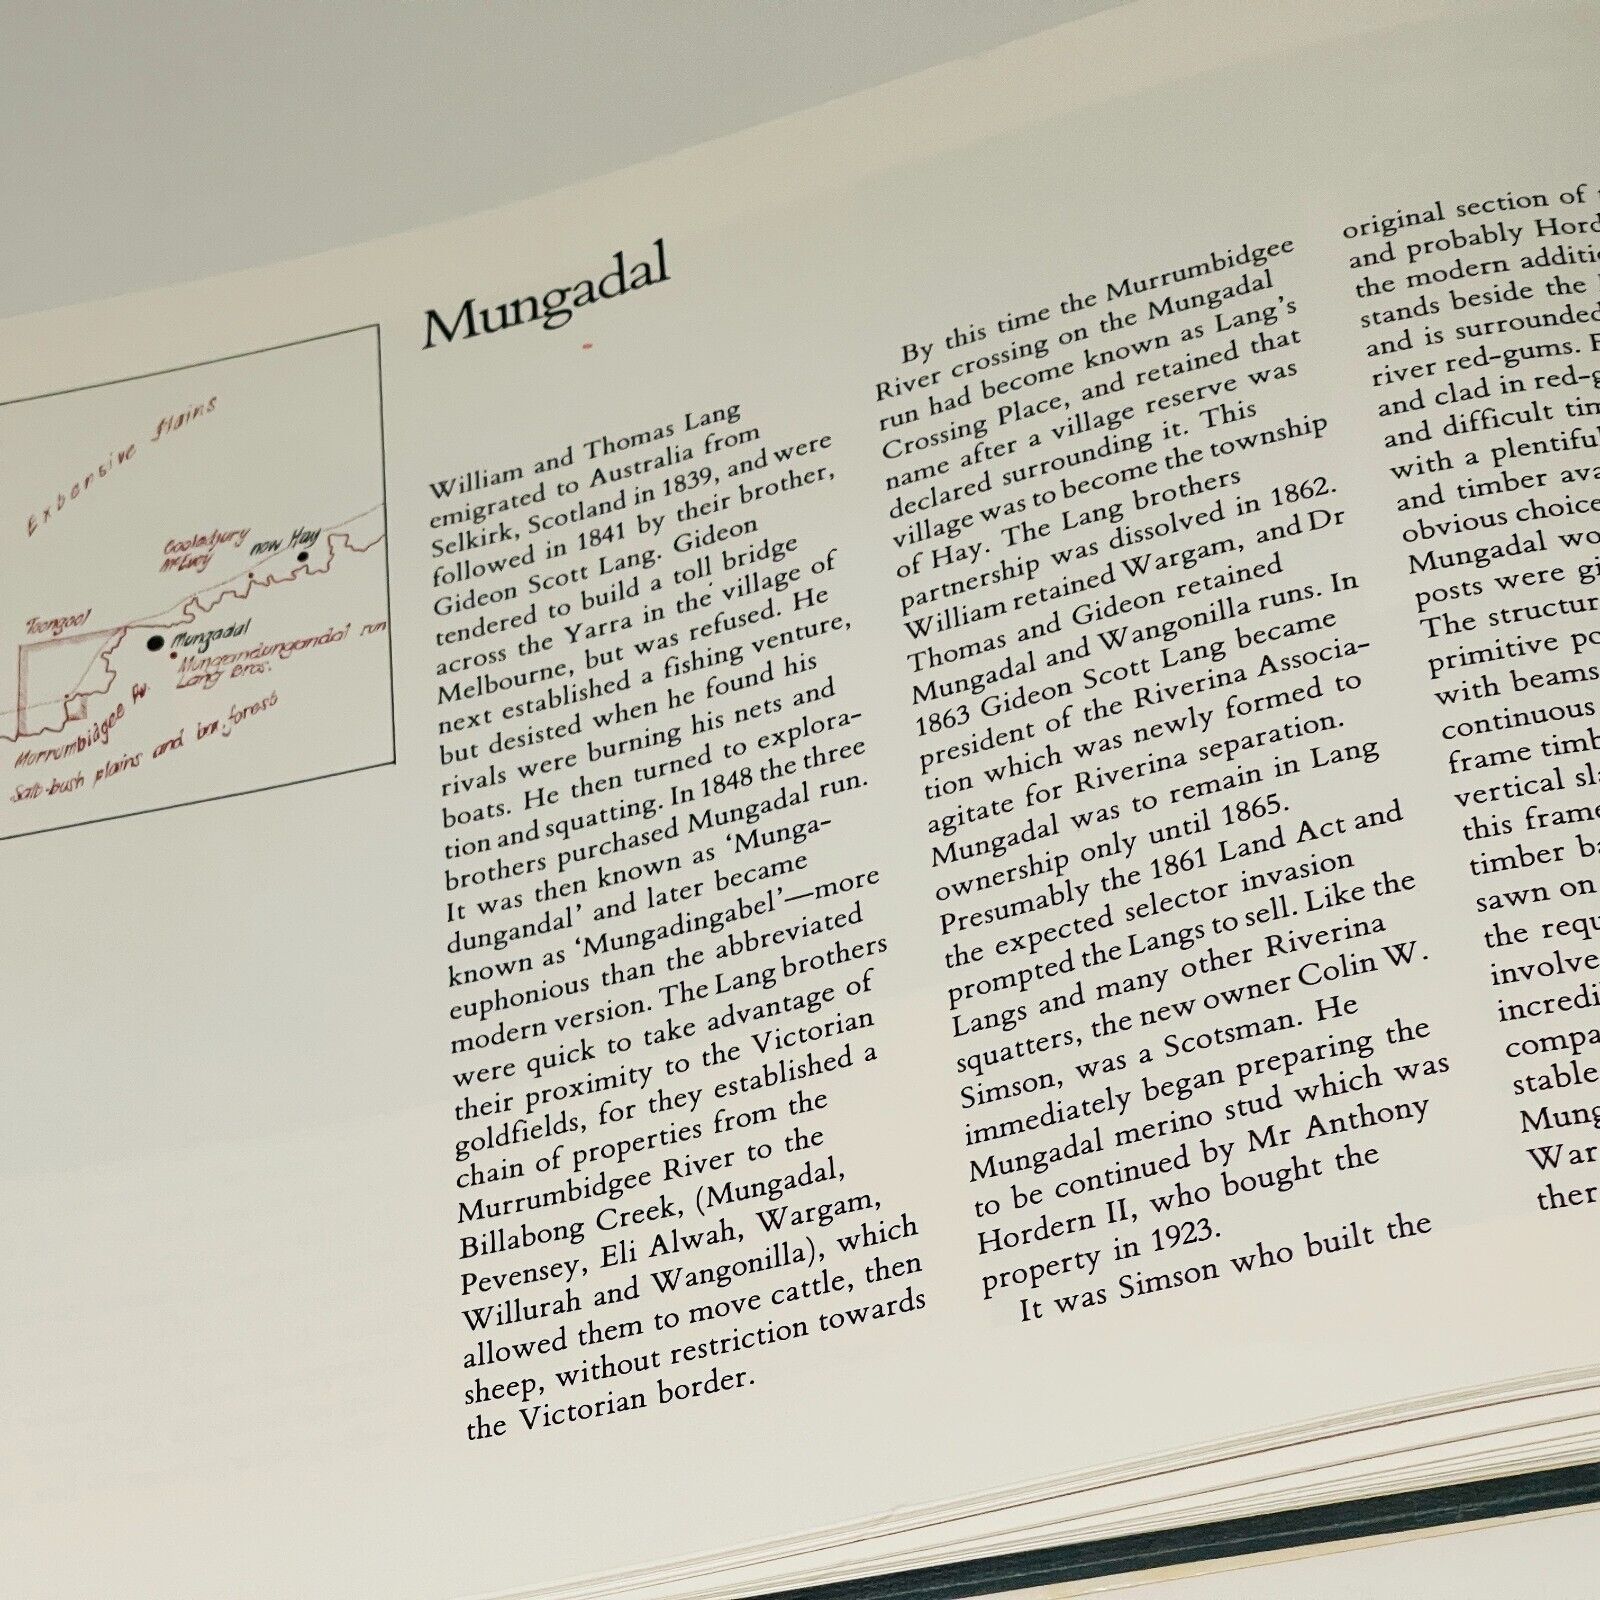 Mungadal
Extensive plains
Cooladjury
McLury
now Hay
Toongool
Mungadal
Mungandungandal run
Lang Bros.
Murrumbidgee Rv.
Salt-bush plains and box forest
William and Thomas Lang
emigrated to Australia from
Selkirk, Scotland in 1839, and were
followed in 1841 by their brother,
Gideon Scott Lang. Gideon
tendered to build a toll bridge
across the Yarra in the village of
Melbourne, but was refused. He
next established a fishing venture,
but desisted when he found his
rivals were burning his nets and
boats. He then turned to explora-
tion and squatting. In 1848 the three
brothers purchased Mungadal run.
It was then known as ‘Munga-
dungandal’ and later became
known as ‘Mungadingabel’—more
euphonious than the abbreviated
modern version. The Lang brothers
were quick to take advantage of
their proximity to the Victorian
goldfields, for they established a
chain of properties from the
Murrumbidgee River to the
Billabong Creek, (Mungadal,
Pevensey, Eli Alwah, Wargam,
Willurah and Wangonilla), which
allowed them to move cattle, then
sheep, without restriction towards
the Victorian border.
By this time the Murrumbidgee
River crossing on the Mungadal
run had become known as Lang’s
Crossing Place, and retained that
name after a village reserve was
declared surrounding it. This
village was to become the township
of Hay. The Lang brothers
partnership was dissolved in 1862.
William retained Wargam, and Dr
Thomas and Gideon retained
Mungadal and Wangonilla runs. In
1863 Gideon Scott Lang became
president of the Riverina Associa-
tion which was newly formed to
agitate for Riverina separation.
Mungadal was to remain in Lang
ownership only until 1865.
Presumably the 1861 Land Act and
the expected selector invasion
prompted the Langs to sell. Like the
Langs and many other Riverina
squatters, the new owner Colin W.
Simson, was a Scotsman. He
immediately began preparing the
Mungadal merino stud which was
to be continued by Mr Anthony
Hordern II, who bought the
property in 1923.
It was Simson who built the
original section of
and probably Hord
the modern additi
stands beside the
and is surrounded
river red-gums. F
and clad in red-g
and difficult tim
with a plentiful
and timber ava
obvious choice
Mungadal wo
posts were gi
The structur
primitive po
with beams
continuous
frame timb
vertical sla
this frame
timber ba
sawn on
the requ
involve
incredi
compa
stable
Mung
War
ther